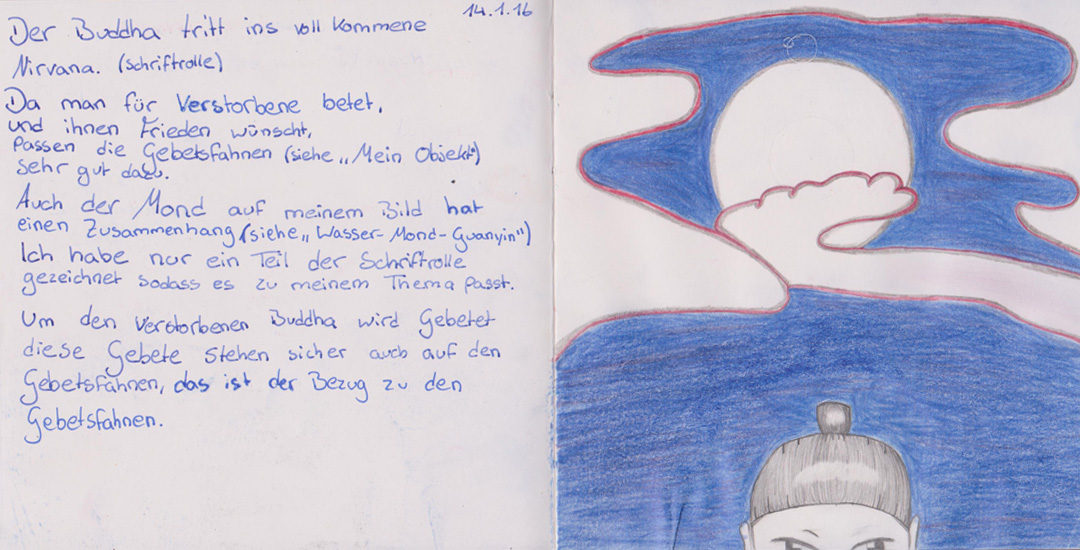 14.1.16
Der Buddha tritt ins voll kommene
Nirvana. (Schriftrolle)
Da man für Verstorbene betet,
und ihnen Frieden wünscht,
passen die Gebetsfahnen (siehe „Mein Objekt")
sehr gut dazu.
Auch der Mond auf meinem Bild hat
einen Zusammenhang (siehe „Wasser-Mond-Guanyin")
Ich habe nur ein Teil der Schriftrolle
gezeichnet sodass es zu meinem Thema passt.
Um den verstorbenen Buddha wird Gebetet
diese Gebete stehen sicher auch auf den
Gebetsfahnen, das ist der Bezug zu den
Gebetsfahnen.